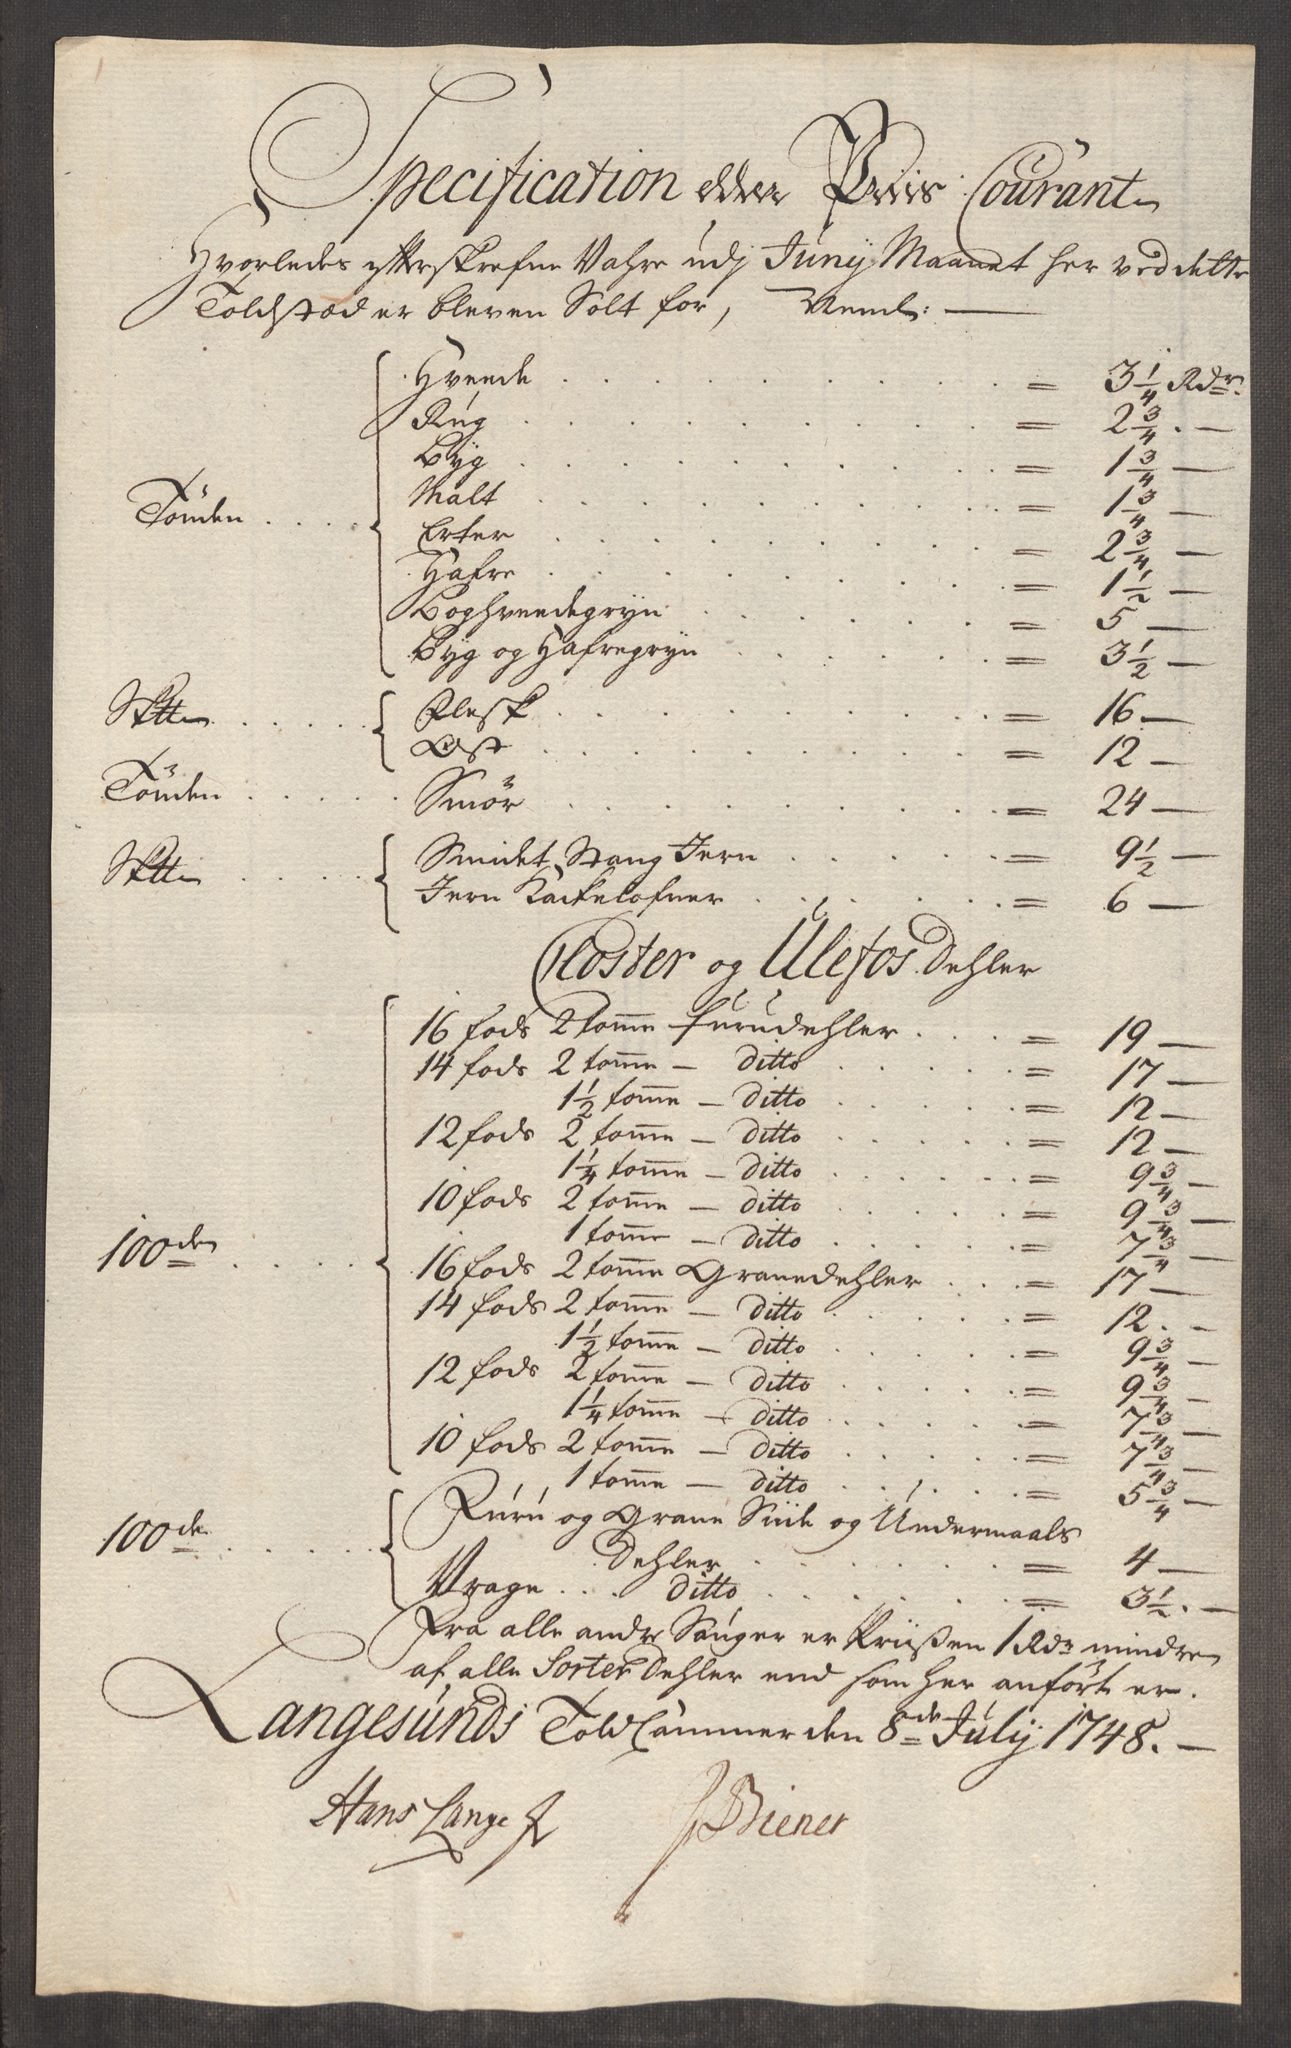 Specification eller Priis Courant
Hvorledes efterskrefne Vahre udj Junij Maanet her ved dette
Toldsted er bleven Solt for, Neml: —
Hvede . . . = 3 1/4 Rdr.
Rug . . . = 2 3/4 . —
Byg . . . = 1 3/4 —
Tönden . . . . Malt . . . = 1 3/4 —
Erter . . . = 2 3/4 —
Hafre . . . = 1 1/2 —
Boghveedegryn . . . = 5 —
Byg og Hafregryn . . . = 3 1/2 —
Sktt . . . . Flesk . . . = 16 —
Ost . . . = 12 —
Tönden . . . . Smör . . . = 24 —
Sktt . . . . Smidet Stang Jern . . . = 9 1/2 —
Jern Kackelofner . . . = 6 —
Closter og Ulefos Dehler
16 fods 2 tomme furudehler . . . = 19 —
14 fods 2 tomme — ditto . . . = 17 —
1 1/2 tomme — ditto . . . = 12 —
12 fods 2 tomme — ditto . . . = 12 —
1 1/4 tomme — ditto . . . = 9 3/4 —
10 fods 2 tomme — ditto . . . = 9 3/4 —
1 tomme — ditto . . . = 7 3/4 —
100de . . . . 16 fods 2 tomme Granedehler . . . = 17 —
14 fods 2 tomme — ditto . . . = 12 . —
1 1/2 tomme — ditto . . . = 9 3/4 —
12 fods 2 tomme — ditto . . . = 9 3/4 —
1 1/4 tomme — ditto . . . = 7 3/4 —
10 fods 2 tomme — ditto . . . = 7 3/4 —
1 tomme — ditto . . . = 5 3/4 —
100de . . . . Furu og Grane Smide og Undermaals
Dehler . . . = 4 —
Vrage . . . ditto . . . = 3 1/2 . —
Fra alle andre Sauger er Priisen 1 Rdr mindre
af alle Sorter Dehler end som her anfört er.
Langesunds Told Cammer den 8de July 1748. —
Hans Lange JBiener